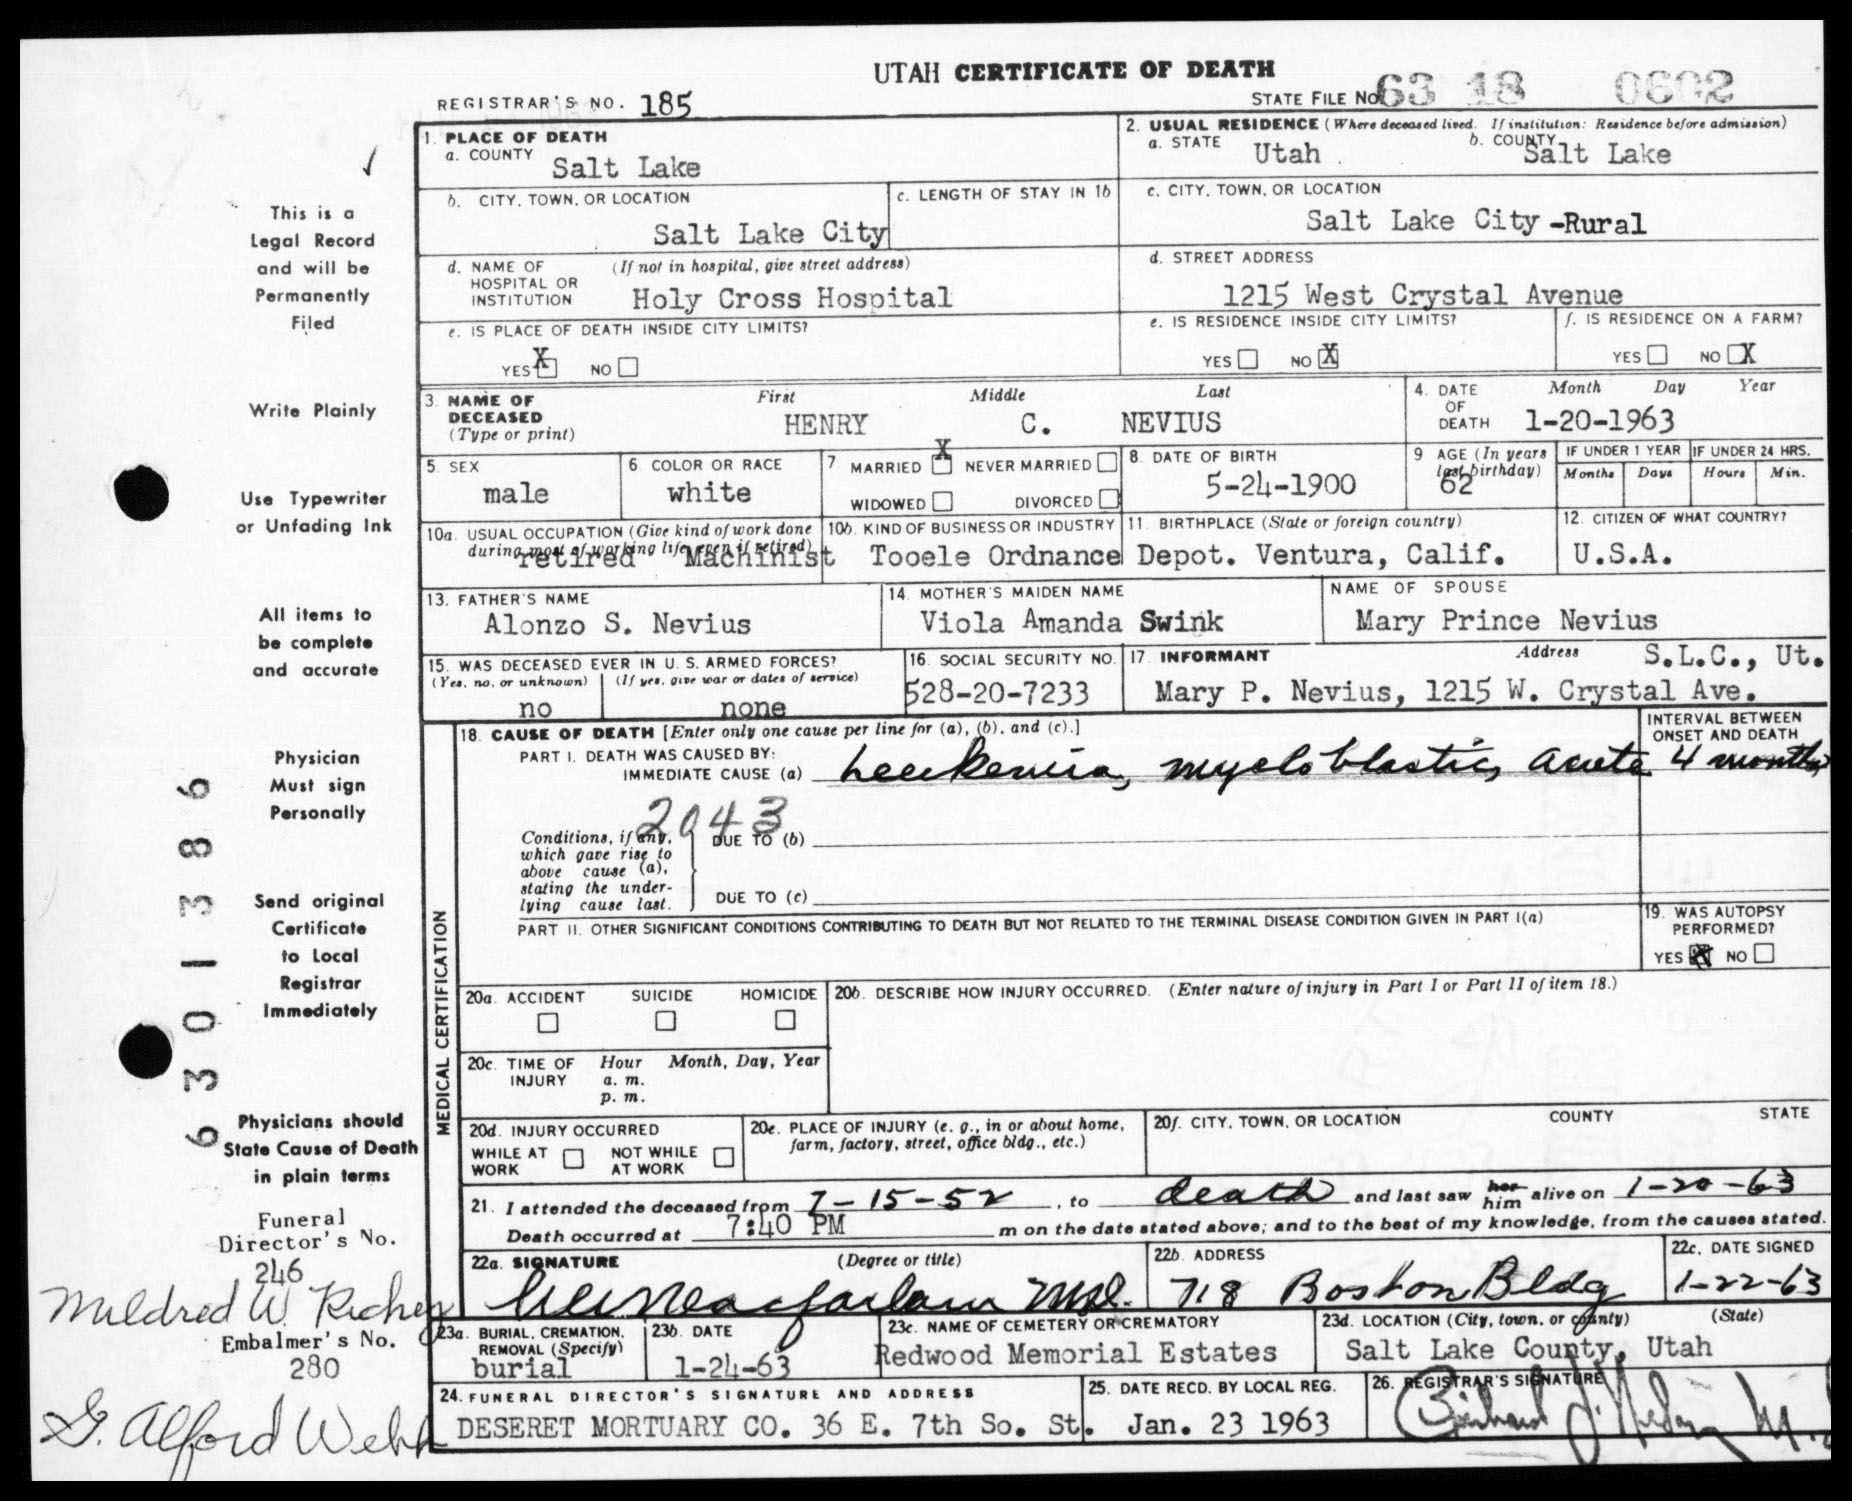 UTAH CERTIFICATE OF DEATH
REGISTRAR'S NO. 185
STATE FILE No. 63 18 0602
1. PLACE OF DEATH
a. COUNTY
Salt Lake
2. USUAL RESIDENCE (Where deceased lived. If institution: Residence before admission)
a. STATE Utah b. COUNTY Salt Lake
b. CITY, TOWN, OR LOCATION
Salt Lake City
c. LENGTH OF STAY IN 1b
c. CITY, TOWN, OR LOCATION
Salt Lake City -Rural
d. NAME OF HOSPITAL OR INSTITUTION (If not in hospital, give street address)
Holy Cross Hospital
d. STREET ADDRESS
1215 West Crystal Avenue
e. IS PLACE OF DEATH INSIDE CITY LIMITS?
YES X NO
e. IS RESIDENCE INSIDE CITY LIMITS?
YES NO X
f. IS RESIDENCE ON A FARM?
YES NO X
3. NAME OF DECEASED (Type or print)
First Middle Last
HENRY C. NEVIUS
4. DATE OF DEATH
Month Day Year
1-20-1963
5. SEX
male
6. COLOR OR RACE
white
7. MARRIED X NEVER MARRIED
WIDOWED DIVORCED
8. DATE OF BIRTH
5-24-1900
9 AGE (In years last birthday)
62
IF UNDER 1 YEAR
Months Days
IF UNDER 24 HRS.
Hours Min.
10a. USUAL OCCUPATION (Give kind of work done during most of working life, even if retired)
retired Machinist
10b. KIND OF BUSINESS OR INDUSTRY
Tooele Ordnance Depot.
11. BIRTHPLACE (State or foreign country)
Ventura, Calif.
12. CITIZEN OF WHAT COUNTRY?
U.S.A.
13. FATHER'S NAME
Alonzo S. Nevius
14. MOTHER'S MAIDEN NAME
Viola Amanda Swink
NAME OF SPOUSE
Mary Prince Nevius
15. WAS DECEASED EVER IN U. S. ARMED FORCES?
(Yes, no, or unknown) (If yes, give war or dates of service)
no none
16. SOCIAL SECURITY NO.
528-20-7233
17. INFORMANT Address S.L.C., Ut.
Mary P. Nevius, 1215 W. Crystal Ave.
MEDICAL CERTIFICATION
18. CAUSE OF DEATH [Enter only one cause per line for (a), (b), and (c).]
INTERVAL BETWEEN ONSET AND DEATH
PART I. DEATH WAS CAUSED BY:
IMMEDIATE CAUSE (a) Leukemia, myeloblastic, acute 4 months
2043
Conditions, if any, which gave rise to above cause (a), stating the underlying cause last.
DUE TO (b)
DUE TO (c)
PART II. OTHER SIGNIFICANT CONDITIONS CONTRIBUTING TO DEATH BUT NOT RELATED TO THE TERMINAL DISEASE CONDITION GIVEN IN PART I(a)
19. WAS AUTOPSY PERFORMED?
YES X NO
20a. ACCIDENT SUICIDE HOMICIDE
20b. DESCRIBE HOW INJURY OCCURRED. (Enter nature of injury in Part I or Part II of item 18.)
20c. TIME OF INJURY Hour Month, Day, Year
a. m.
p. m.
20d. INJURY OCCURRED
WHILE AT WORK NOT WHILE AT WORK
20e. PLACE OF INJURY (e. g., in or about home, farm, factory, street, office bldg., etc.)
20f. CITY, TOWN, OR LOCATION COUNTY STATE
21. I attended the deceased from 7-15-52, to death and last saw her him alive on 1-20-63
Death occurred at 7:40 PM m on the date stated above; and to the best of my knowledge, from the causes stated.
22a. SIGNATURE (Degree or title)
Macfarlane M.D.
22b. ADDRESS
718 Boston Bldg
22c. DATE SIGNED
1-22-63
23a. BURIAL, CREMATION, REMOVAL (Specify)
burial
23b. DATE
1-24-63
23c. NAME OF CEMETERY OR CREMATORY
Redwood Memorial Estates
23d. LOCATION (City, town, or county) (State)
Salt Lake County, Utah
24. FUNERAL DIRECTOR'S SIGNATURE AND ADDRESS
DESERET MORTUARY CO. 36 E. 7th So. St.
25. DATE RECD. BY LOCAL REG.
Jan. 23 1963
26. REGISTRAR'S SIGNATURE
This is a
Legal Record
and will be
Permanently
Filed
Write Plainly
Use Typewriter
or Unfading Ink
All items to
be complete
and accurate
Physician
Must sign
Personally
Send original
Certificate
to Local
Registrar
Immediately
Physicians should
State Cause of Death
in plain terms
6301386
Funeral
Director's No.
246
Mildred W. Richey
Embalmer's No.
280
G. Alford Webb